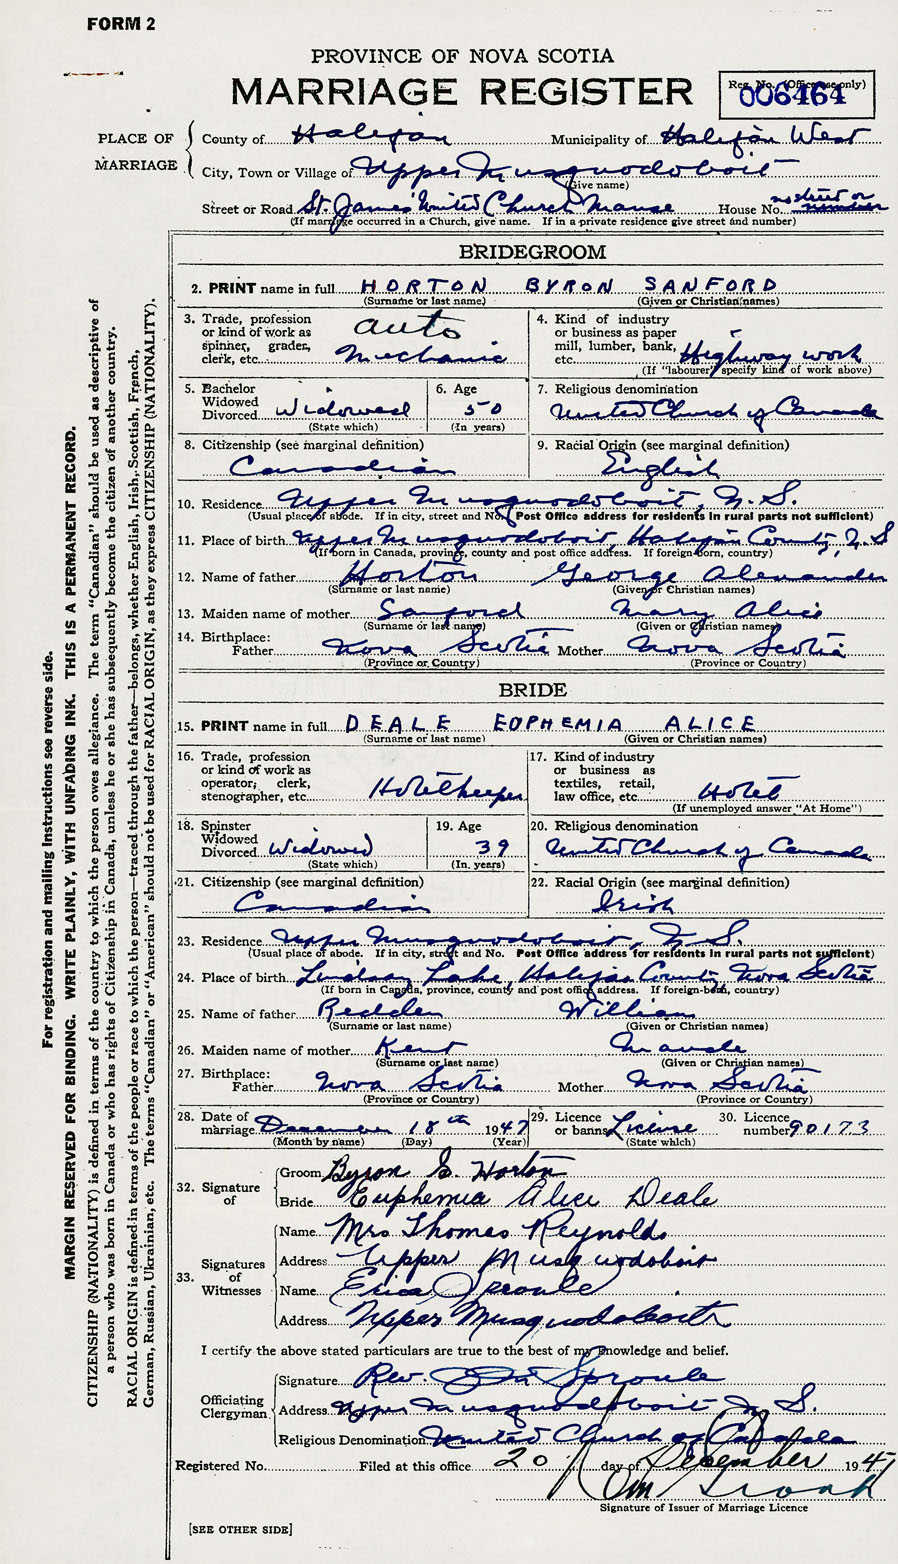 FORM 2
PROVINCE OF NOVA SCOTIA
MARRIAGE REGISTER
Reg. No. (Office use only)
006464
PLACE OF MARRIAGE
County of Halifax Municipality of Halifax West
City, Town or Village of Upper Musquodoboit
(Give name)
Street or Road St. James' United Church Manse House No. no street or number
(If marriage occurred in a Church, give name. If in a private residence give street and number)
BRIDEGROOM
2. PRINT name in full HORTON BYRON SANFORD
(Surname or last name) (Given or Christian names)
3. Trade, profession or kind of work as spinner, grader, clerk, etc. Auto Mechanic
4. Kind of industry or business as paper mill, lumber, bank, etc. Highway work
(If "labourer" specify kind of work above)
5. Bachelor Widowed Divorced Widowed
(State which)
6. Age 50
(In years)
7. Religious denomination
United Church of Canada
8. Citizenship (see marginal definition)
Canadian
9. Racial Origin (see marginal definition)
English
10. Residence Upper Musquodoboit, N.S.
(Usual place of abode. If in city, street and No. Post Office address for residents in rural parts not sufficient)
11. Place of birth Upper Musquodoboit, Halifax County, N.S
(If born in Canada, province, county and post office address. If foreign-born, country)
12. Name of father Horton George Alexander
(Surname or last name) (Given or Christian names)
13. Maiden name of mother Sanford Mary Alice
(Surname or last name) (Given or Christian names)
14. Birthplace:
Father Nova Scotia Mother Nova Scotia
(Province or Country) (Province or Country)
BRIDE
15. PRINT name in full DEALE EUPHEMIA ALICE
(Surname or last name) (Given or Christian names)
16. Trade, profession or kind of work as operator, clerk, stenographer, etc. Hotelkeeper
17. Kind of industry or business as textiles, retail, law office, etc. Hotel
(If unemployed answer "At Home")
18. Spinster Widowed Divorced Widowed
(State which)
19. Age 39
(In years)
20. Religious denomination
United Church of Canada
21. Citizenship (see marginal definition)
Canadian
22. Racial Origin (see marginal definition)
Irish
23. Residence Upper Musquodoboit, N.S.
(Usual place of abode. If in city, street and No. Post Office address for residents in rural parts not sufficient)
24. Place of birth Lindsay Lake, Halifax County, Nova Scotia
(If born in Canada, province, county and post office address. If foreign-born, country)
25. Name of father Redden William
(Surname or last name) (Given or Christian names)
26. Maiden name of mother Kent Maude
(Surname or last name) (Given or Christian names)
27. Birthplace:
Father Nova Scotia Mother Nova Scotia
(Province or Country) (Province or Country)
28. Date of marriage December 18th 1947
(Month by name) (Day) (Year)
29. Licence or banns License
(State which)
30. Licence number 90173
32. Signature of
Groom Byron S. Horton
Bride Euphemia Alice Deale
33. Signatures of Witnesses
Name Mrs Thomas Reynolds
Address Upper Musquodoboit
Name Erica Sproule
Address Upper Musquodoboit
I certify the above stated particulars are true to the best of my knowledge and belief.
Officiating Clergyman
Signature Rev. Sproule
Address Upper Musquodoboit N.S.
Religious Denomination United Church of Canada
Registered No. Filed at this office 20 day of December 1947
Signature of Issuer of Marriage Licence
[SEE OTHER SIDE]
For registration and mailing instructions see reverse side.
MARGIN RESERVED FOR BINDING. WRITE PLAINLY, WITH UNFADING INK. THIS IS A PERMANENT RECORD.
CITIZENSHIP (NATIONALITY) is defined in terms of the country to which the person owes allegiance. The term "Canadian" should be used as descriptive of
a person who was born in Canada or who has rights of Citizenship in Canada, unless he or she has subsequently become the citizen of another country.
RACIAL ORIGIN is defined in terms of the people or race to which the person—traced through the father—belongs, whether English, Irish, Scottish, French,
German, Russian, Ukrainian, etc. The terms "Canadian" or "American" should not be used for RACIAL ORIGIN, as they express CITIZENSHIP (NATIONALITY).